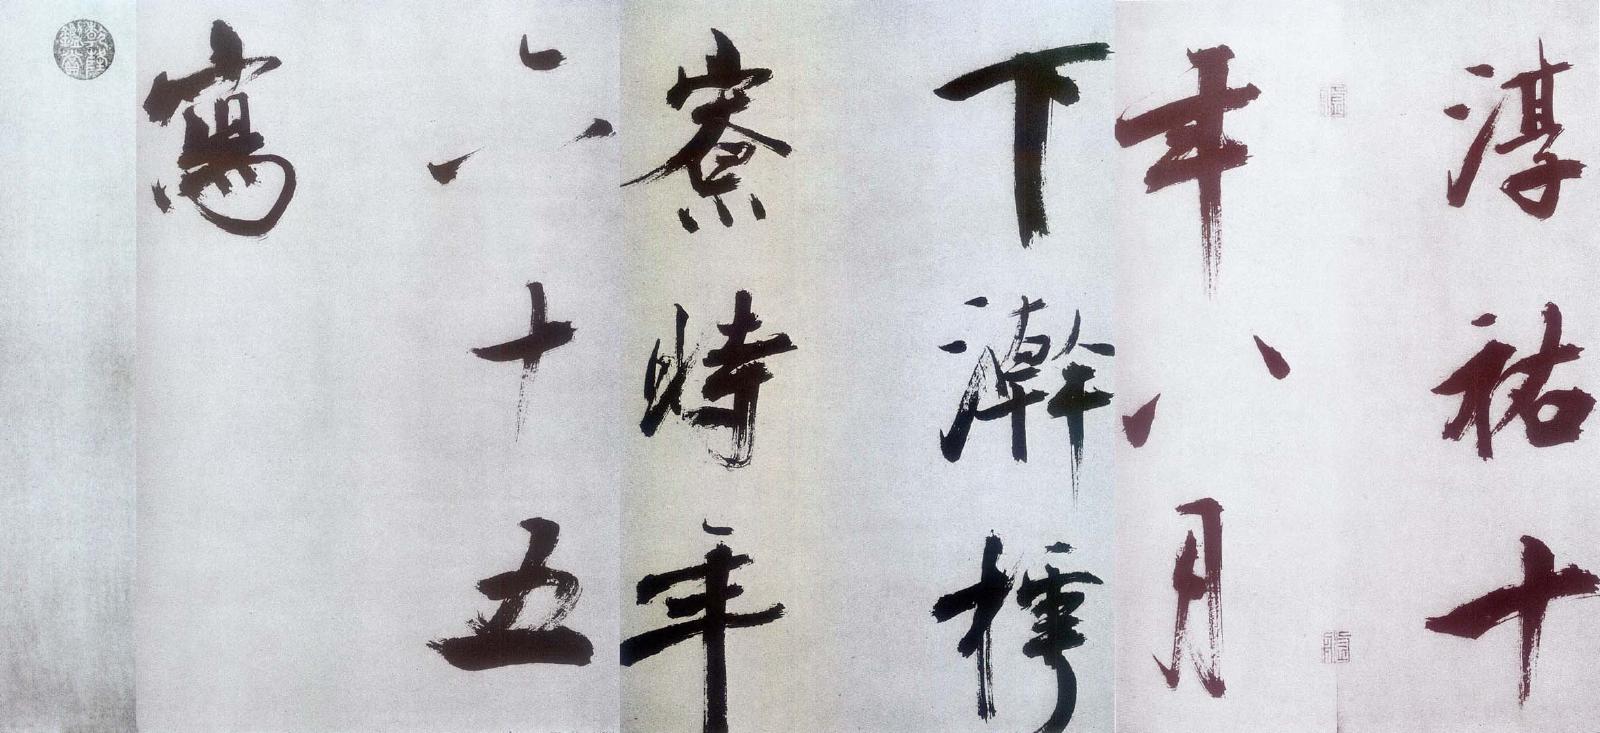 淳祐十
年八月
下澣樗
寮時年
六十五
寫
乾隆鑑賞